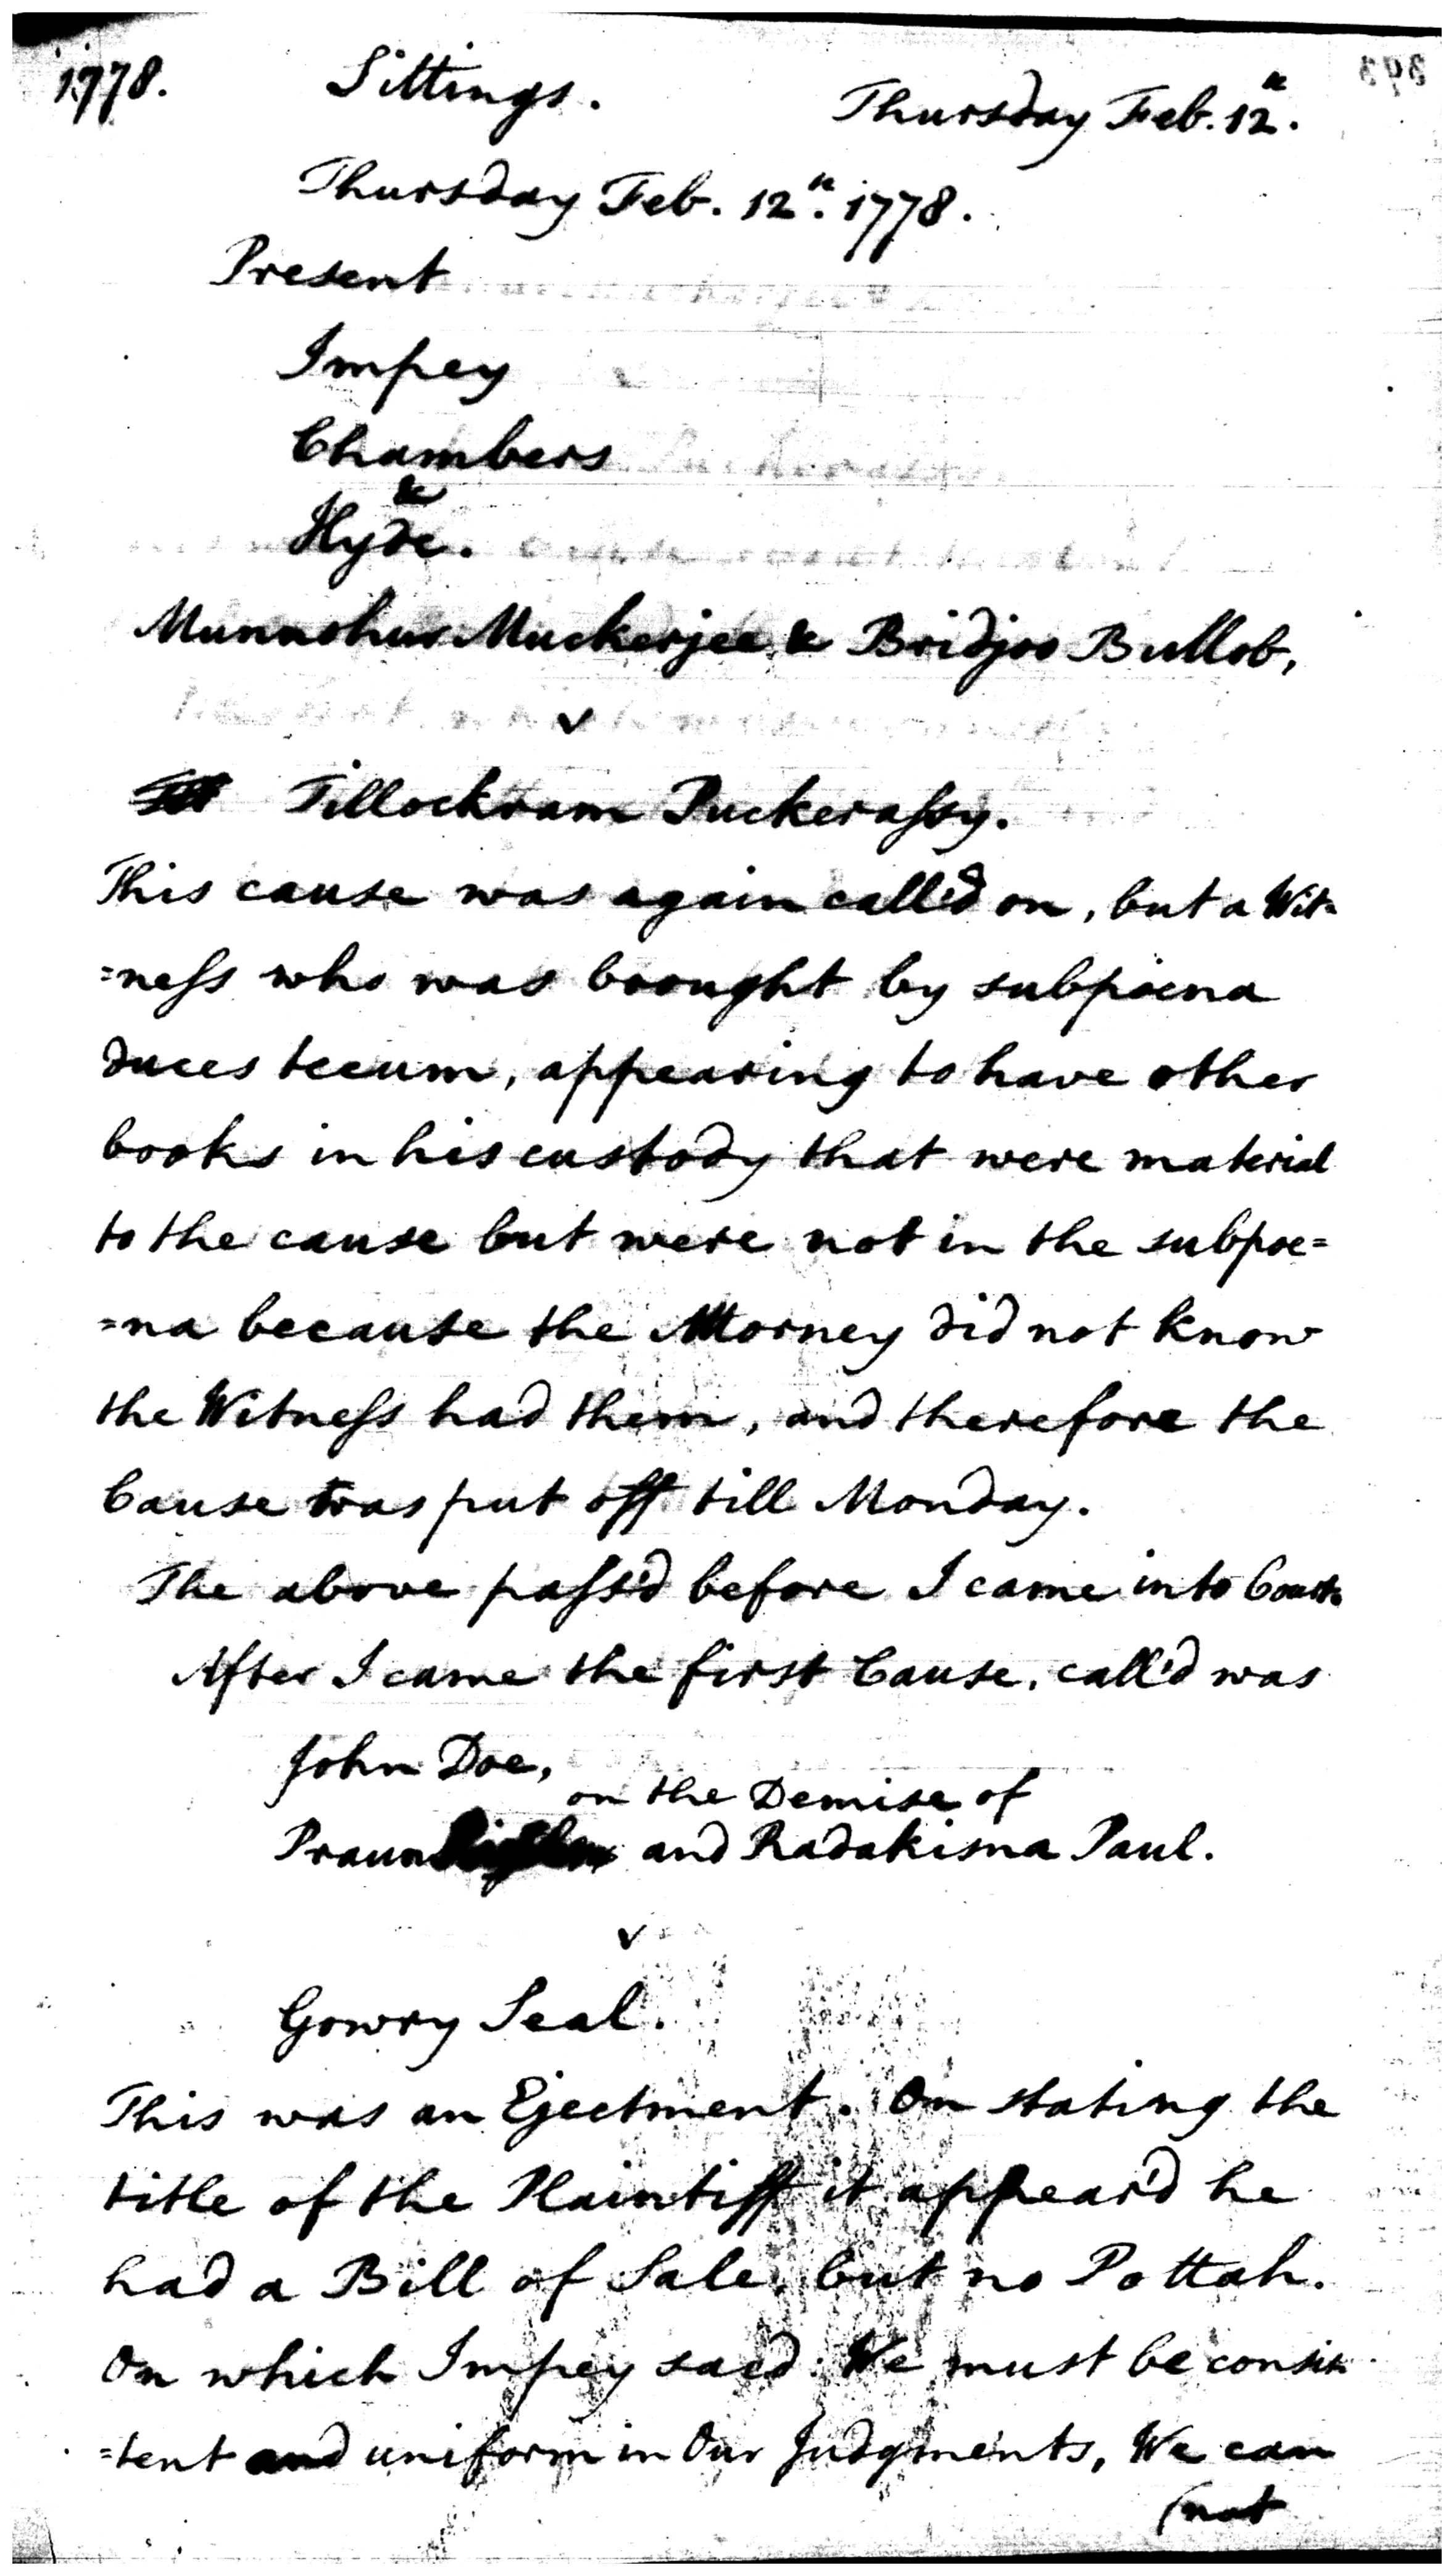 1778. Sittings. Thursday Feb. 12th.
Thursday Feb. 12th. 1778.
Present
Impey
Chambers
&
Hyde.
Munnohur Muckerjee & Bridjoo Bullob,
v
Tillockram Puckeraſsy.
This cause was again call'd on, but a Wit=
=neſs who was brought by subpoena
duces tecum, appearing to have other
books in his custody that were material
to the cause but were not in the subpoe=
=na because the Attorney did not know
the Witneſs had them, and therefore the
Cause was put off till Monday.
The above paſs'd before I came into Court.
After I came the first Cause, call'd was
John Doe,
on the Demise of
Praun and Radakisna Paul.
v
Gowry Seal.
This was an Ejectment. On stating the
title of the Plaintiff it appear'd he
had a Bill of Sale, but no Pottah.
On which Impey said We must be consis=
=tent and uniform in Our Judgments, We can
(not